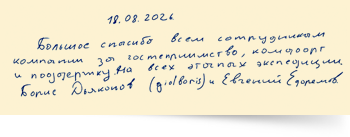 18.08.2026
Большое спасибо всем сотрудникам
компании за гостеприимство, комфорт
и поддержку на всех этапах экспедиции
Борис Дьяконов (giolboris) и Евгений Ефремов